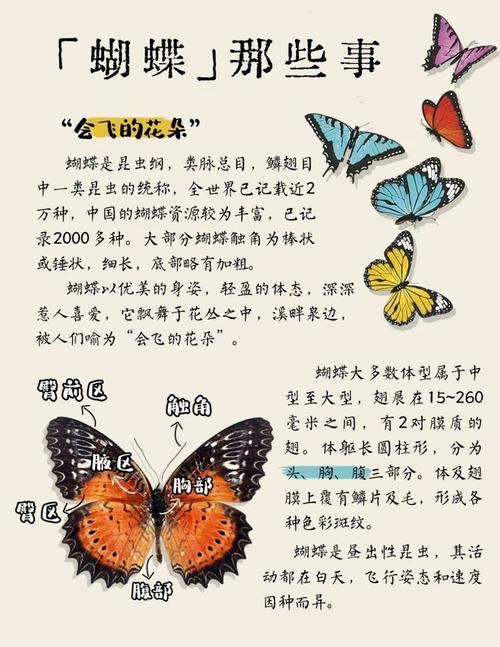 「蝴蝶」那些事
“会飞的花朵”
蝴蝶是昆虫纲，类脉总目，鳞翅目
中一类昆虫的统称，全世界已记载近2
万种，中国的蝴蝶资源较为丰富，已记
录2000多种。大部分蝴蝶触角为棒状
或锤状，细长，底部略有加粗。
蝴蝶以优美的身姿，轻盈的体态，深深
惹人喜爱，它飘舞于花丛之中，溪畔泉边，
被人们喻为“会飞的花朵”。
臀前区
触角
腋区
胸部
臀区
腹部
蝴蝶大多数体型属于中
型至大型，翅展在15~260
毫米之间，有2对膜质的
翅。体躯长圆柱形，分为
头、胸、腹三部分。体及翅
膜上覆有鳞片及毛，形成各
种色彩斑纹。
蝴蝶是昼出性昆虫，其活
动都在白天，飞行姿态和速度
因种而异。